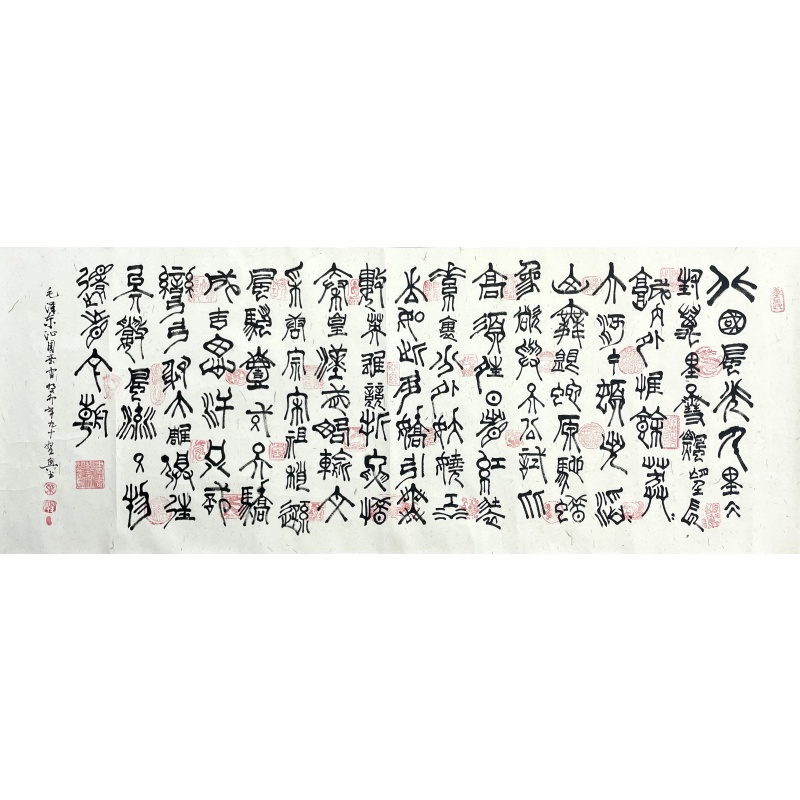 北國風光千里冰
封萬里雪飄望長
城內外惟餘莽〻
大河上下頓失滔〻
山舞銀蛇原馳蠟
象欲與天公試比
高須晴日看紅裝
素裹分外妖嬈江
山如此多嬌引無
數英雄競折腰惜
秦皇漢武略輸文
采唐宗宋祖稍遜
風騷一代天驕
成吉思汗只識
彎弓射大雕俱往
矣數風流人物
還看今朝
毛澤東沁園春雪癸卯年九十